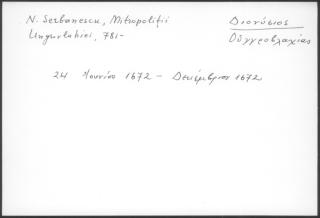 N. Serbanescu, Mitropoliţii
Ungrovlahiei, 781-
Διονύσιος
Οὑγγροβλαχίας
24 Ἰουνίου 1672 – Δεκέμβριον 1672